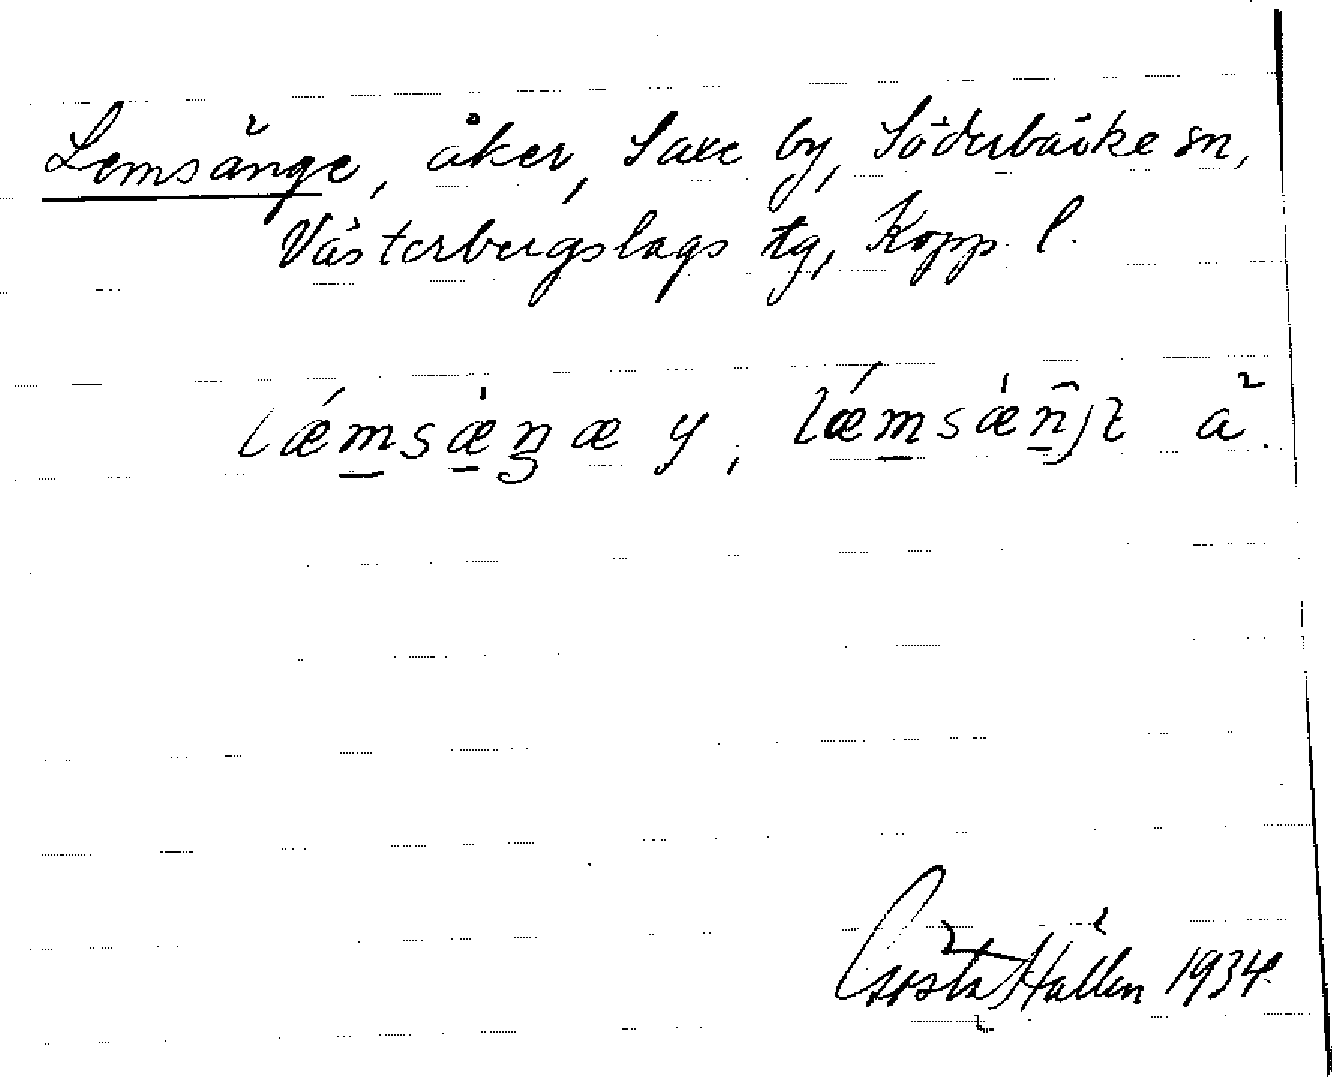 Lemsänge, åker, Saxe by, Söderbärke sn,
Västerbergslags tg, Kopp. l.
lǽmsæ̍ŋæ y, lǽmsæ̍n̂ʃt a².
Gösta Hallén 1934.